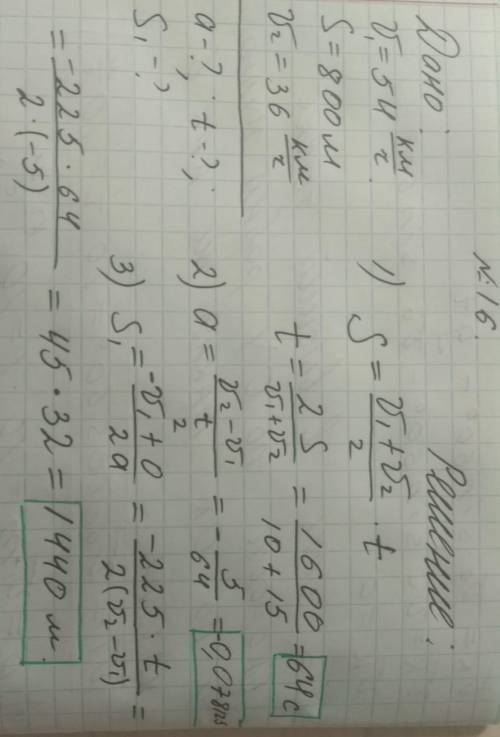 № 16.
Дано:
Решение:
v₁ = 54 км/ч
S = 800 м
v₂ = 36 км/ч
a - ?, t - ?,
S₁ - ?
1) S = (v₁ + v₂)/2 · t
t = 2S/(v₁ + v₂) = 1600/(10 + 15) = 64 с
2) a = (v₂ - v₁)/t = - 5/64 = -0,078125
3) S₁ = (-v₁² + 0)/(2a) = (-225 · t)/(2(v₂ - v₁)) =
= (-225 · 64)/(2 · (-5)) = 45 · 32 = 1440 м.